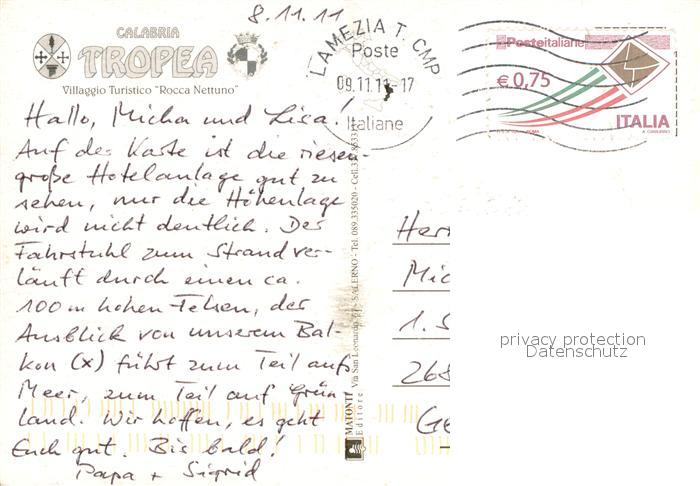 8.11.11
CALABRIA
TROPEA
Villaggio Turistico "Rocca Nettuno"
Hallo, Micha und Lisa!
Auf der Karte ist die riesen-
große Hotelanlage gut zu
sehen, nur die Höhenlage
wird nicht deutlich. Der
Fahrstuhl zum Strand ver-
läuft durch einen ca.
100 m hohen Felsen, der
Ausblick von unserem Bal-
kon (x) führt zum Teil aufs
Meer, zum Teil auf Grün
land. Wir hoffen, es geht
Euch gut. Bis bald!
Papa + Sigrid
MATONTI
Editore
Via San Leonardo, 61 - SALERNO - Tel. 089.335020 - Cell.
LAMEZIA T. CMP
Poste
09.11.11-17
Italiane
Posteitaliane
€ 0,75
ITALIA
Her
Mic
1. S
268
Ge
privacy protection
Datenschutz